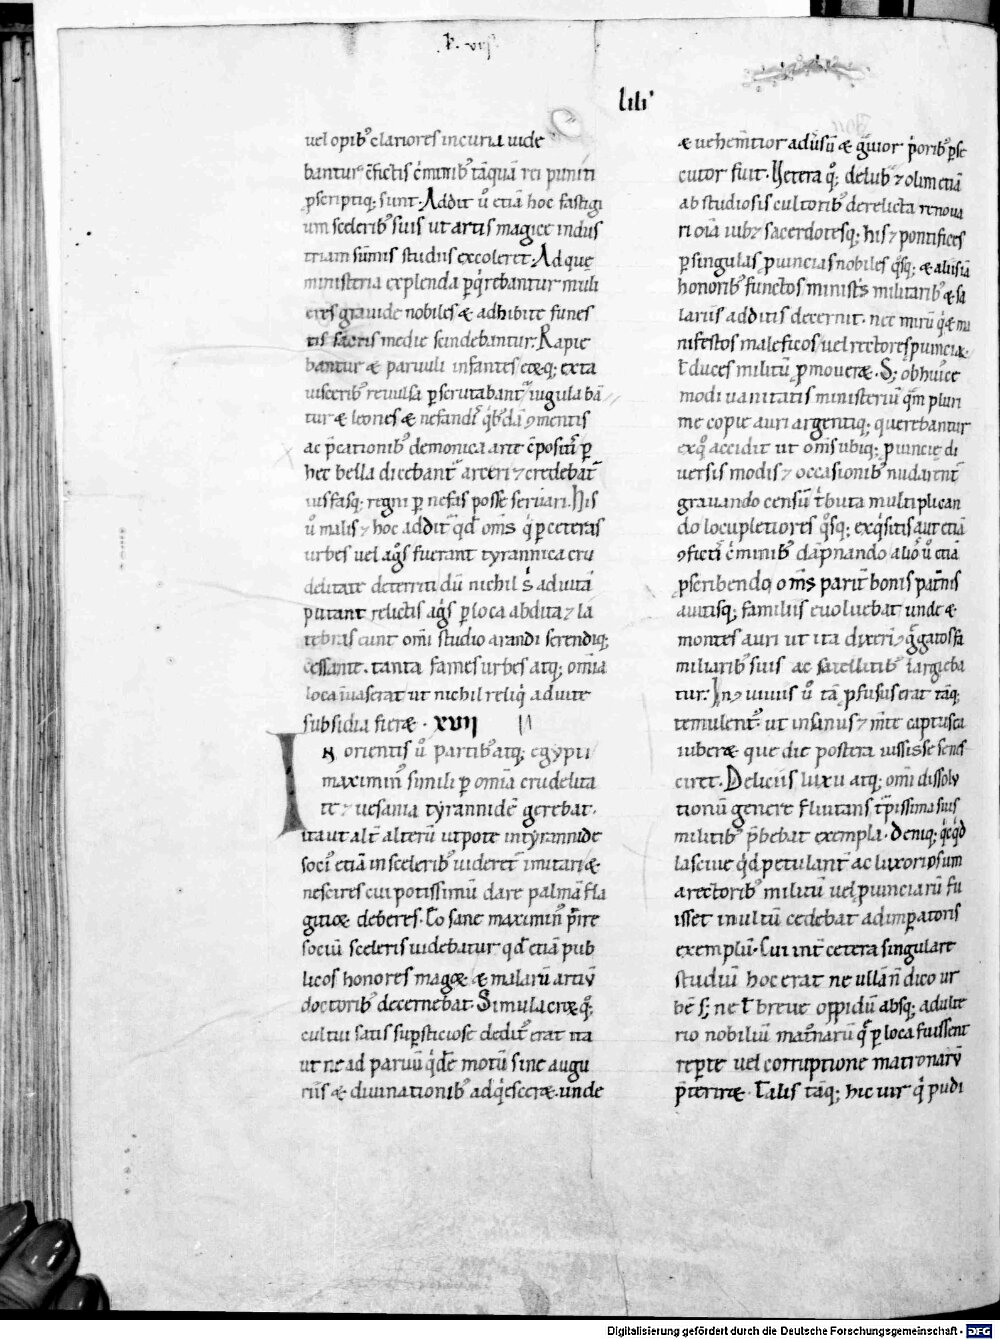 lıli'
uel opib; clariores in curia uide
bantur c̄fictis c̄minib; tāquā rei puniti
ꝓscriptiq; sunt. Addit u̅ etiā hoc fastigi
um scelerib; suis ut artis magice indus
triam sūmis studiis excoleret. Ad quę
ministeria explenda ꝑq̇rebantur muli
eres grauide nobiles & adhibite funes
tis sacris medie scindebantur. Rapie
bantur & paruuli infantes eorq; exta
uisceribꝰ reuulsa ꝑscrutabantᷣ iugulabā
tur & leones & nefandiſ q̇bꝰdā ꝯmentis
ac p̄cationibꝰ demonica arte c̄positiſ ꝑ
hec bella dicebantᷣ arceri ⁊ credebatᷣ
ius fasq; regni ꝑ nefas posse seruari. His
u̅ malis ⁊ hoc additᷣ qd̄ om̄s q̇ ꝑ ceteras
urbes uel ag̊s fuerant tyrannica cru
delitate deterriti dū nichil s̄ ad uitā
putant relictis ag̊s ꝑ loca abdita ⁊ la
tebras eunt omi studio arandi serendiq;
cessante. tanta fames urbes atq; om̄ia
loca īuaserat ut nichil reliq̇ ad uite
subsidia fier&. XVII
IN orientis u̅ partibꝰ atq; egypti
maximinꝰ simili ꝑ omīa crudelita
te ⁊ uesania tyrannidē gerebat.
ita ut altᷣ alterū utpote in tyrannide
sociꝰ etiā in sceleribꝰ uideretᷣ imitari &
nescires cui potissimū dare palmā fla
gitioꝝ deberes. Eo sane maximinꝰ p̄ire
sociū sceleris uidebatur qd̄ etiā pub
licos honores magoꝝ & malarū artiū
doctoribꝰ decernebat. Simulacroꝝ q̊;
cultui satis suꝑsticiose deditꝰ erat ita
ut ne ad paruū q̇dē motū sine augu
riis & diuinationibꝰ adq̇escer&. unde
& uehem̄tior aduersū & g̊uior p̊oribꝰ ꝑse
cutor fuit. Uetera q̊; delubꝝ ⁊ olim etiā
ab studiosis cultoribꝰ derelicta renoua
ri oīa iub& sacerdotesq; his ⁊ pontifices
ꝑ singulas ꝓuincias nobiles q̊sq; & altisīa
honoribꝰ functos ministᷣs militaribꝰ & sa
lariis additis decernit. nec mirū q̇ & ma
nifestos maleficos uel rectores ꝓuinciaꝝ
ł duces militū ꝓmouer&. S; ob huiꝰce
modi uanitatis ministeriū q̄m pluri
me copie auri argentiq; querebantur
ex q̊ accidit ut om̄s ubiq; ꝓuincię di
uersis modis ⁊ occasionibꝰ nudarentᷣ
grauando censū t̊buta multiplican
do locupletiores q̊sq; exq̇sitis aut etiā
ꝯfictiſ c̄minibꝰ dāpnando alios u̅ etiā
ꝓscribendo om̄s paritᷣ bonis pat̄nis
auitisq; familiis euoluebat unde &
montes auri ut ita dixerī ꝯg̊gatos fa
miliaribꝰ suis ac satellitibꝰ largieba
tur. In ꝯuiuiis u̅ tā ꝓfusus erat tāq;
temulentꝰ ut insanus ⁊ m̄te captus ea
iuber& que die postera iussisse nesci
ciret. Deliciis luxu atq; omī dissolu
tionū genere fluitans t̊pissima suis
militibꝰ p̄bebat exempla. Deniq; q̇cq̇d
lasciue q̇d petulantᷣ ac luxoriosum
a rectoribꝰ militū uel ꝓuinciarū fu
isset inultū cedebat ad imꝑatoris
exemplū. Cui int̄ cetera singulare
studiū hoc erat ne ullā n̄ dico ur
bē s; ne ł breue oppidū absq; adulte
rio nobiliū mat̊narū q̄s ꝑ loca fuissent
reꝑte uel corruptione matronarū
p̄terir&. Talis tāq; hic uir q̇ pudi
Digitalisierung gefördert durch die Deutsche Forschungsgemeinschaft - DFG